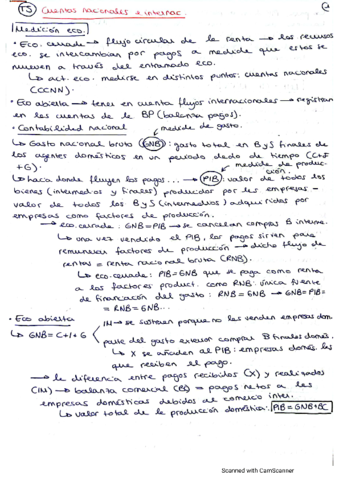 T5 Cuentas nacionales e internac.
Medición eco.
• Eco. cerrada → flujo circular de la renta → los recursos
eco. se intercambian por pagos a medida que estos se
mueven a través del entramado eco.
↳ act. eco. medirse en distintos puntos: cuentas nacionales
(CCNN).
• Eco abierta → tener en cuenta flujos internacionales → registran
en las cuentas de la BP (balanza pagos).
• Contabilidad nacional → medida de gasto.
↳ Gasto nacional bruto (GNB): gasto total en ByS finales de
los agentes domésticos en un periodo dado de tiempo (C+I
+G). → medida de produc-
ción.
↳ hacia donde fluyen los pagos... → (PIB): valor de todos los
bienes (intermedios y finales) producidos por las empresas -
valor de todos los ByS (intermedios) adquiridos por
empresas como factores de producción.
→ eco. cerrada: GNB=PIB → se cancelan compras B interme.
↳ una vez vendido el PIB, los pagos sirven para
remunerar factores de producción → dicho flujo de
rentas = renta nacional bruta (RNB).
↳ eco. cerrada: PIB=GNB que se paga como renta
a los factores product. como RNB: única fuente
de financiación del gasto: RNB=GNB → GNB=PIB=
= RNB = GNB...
• Eco abierta
IM → se sustraen porque no las venden empresas dom.
↳ GNB=C+I+G
parte del gasto exterior comprar B finales domés.
↳ X se añaden al PIB: empresas domés. las
que reciben el pago.
→ la diferencia entre pagos recibidos (X) y realizados
(IM) → balanza comercial (BC) = pagos netos a las
empresas domésticas debidos al comercio inter.
↳ valor total de la producción doméstica: PIB=GNB+BC
Scanned with CamScanner